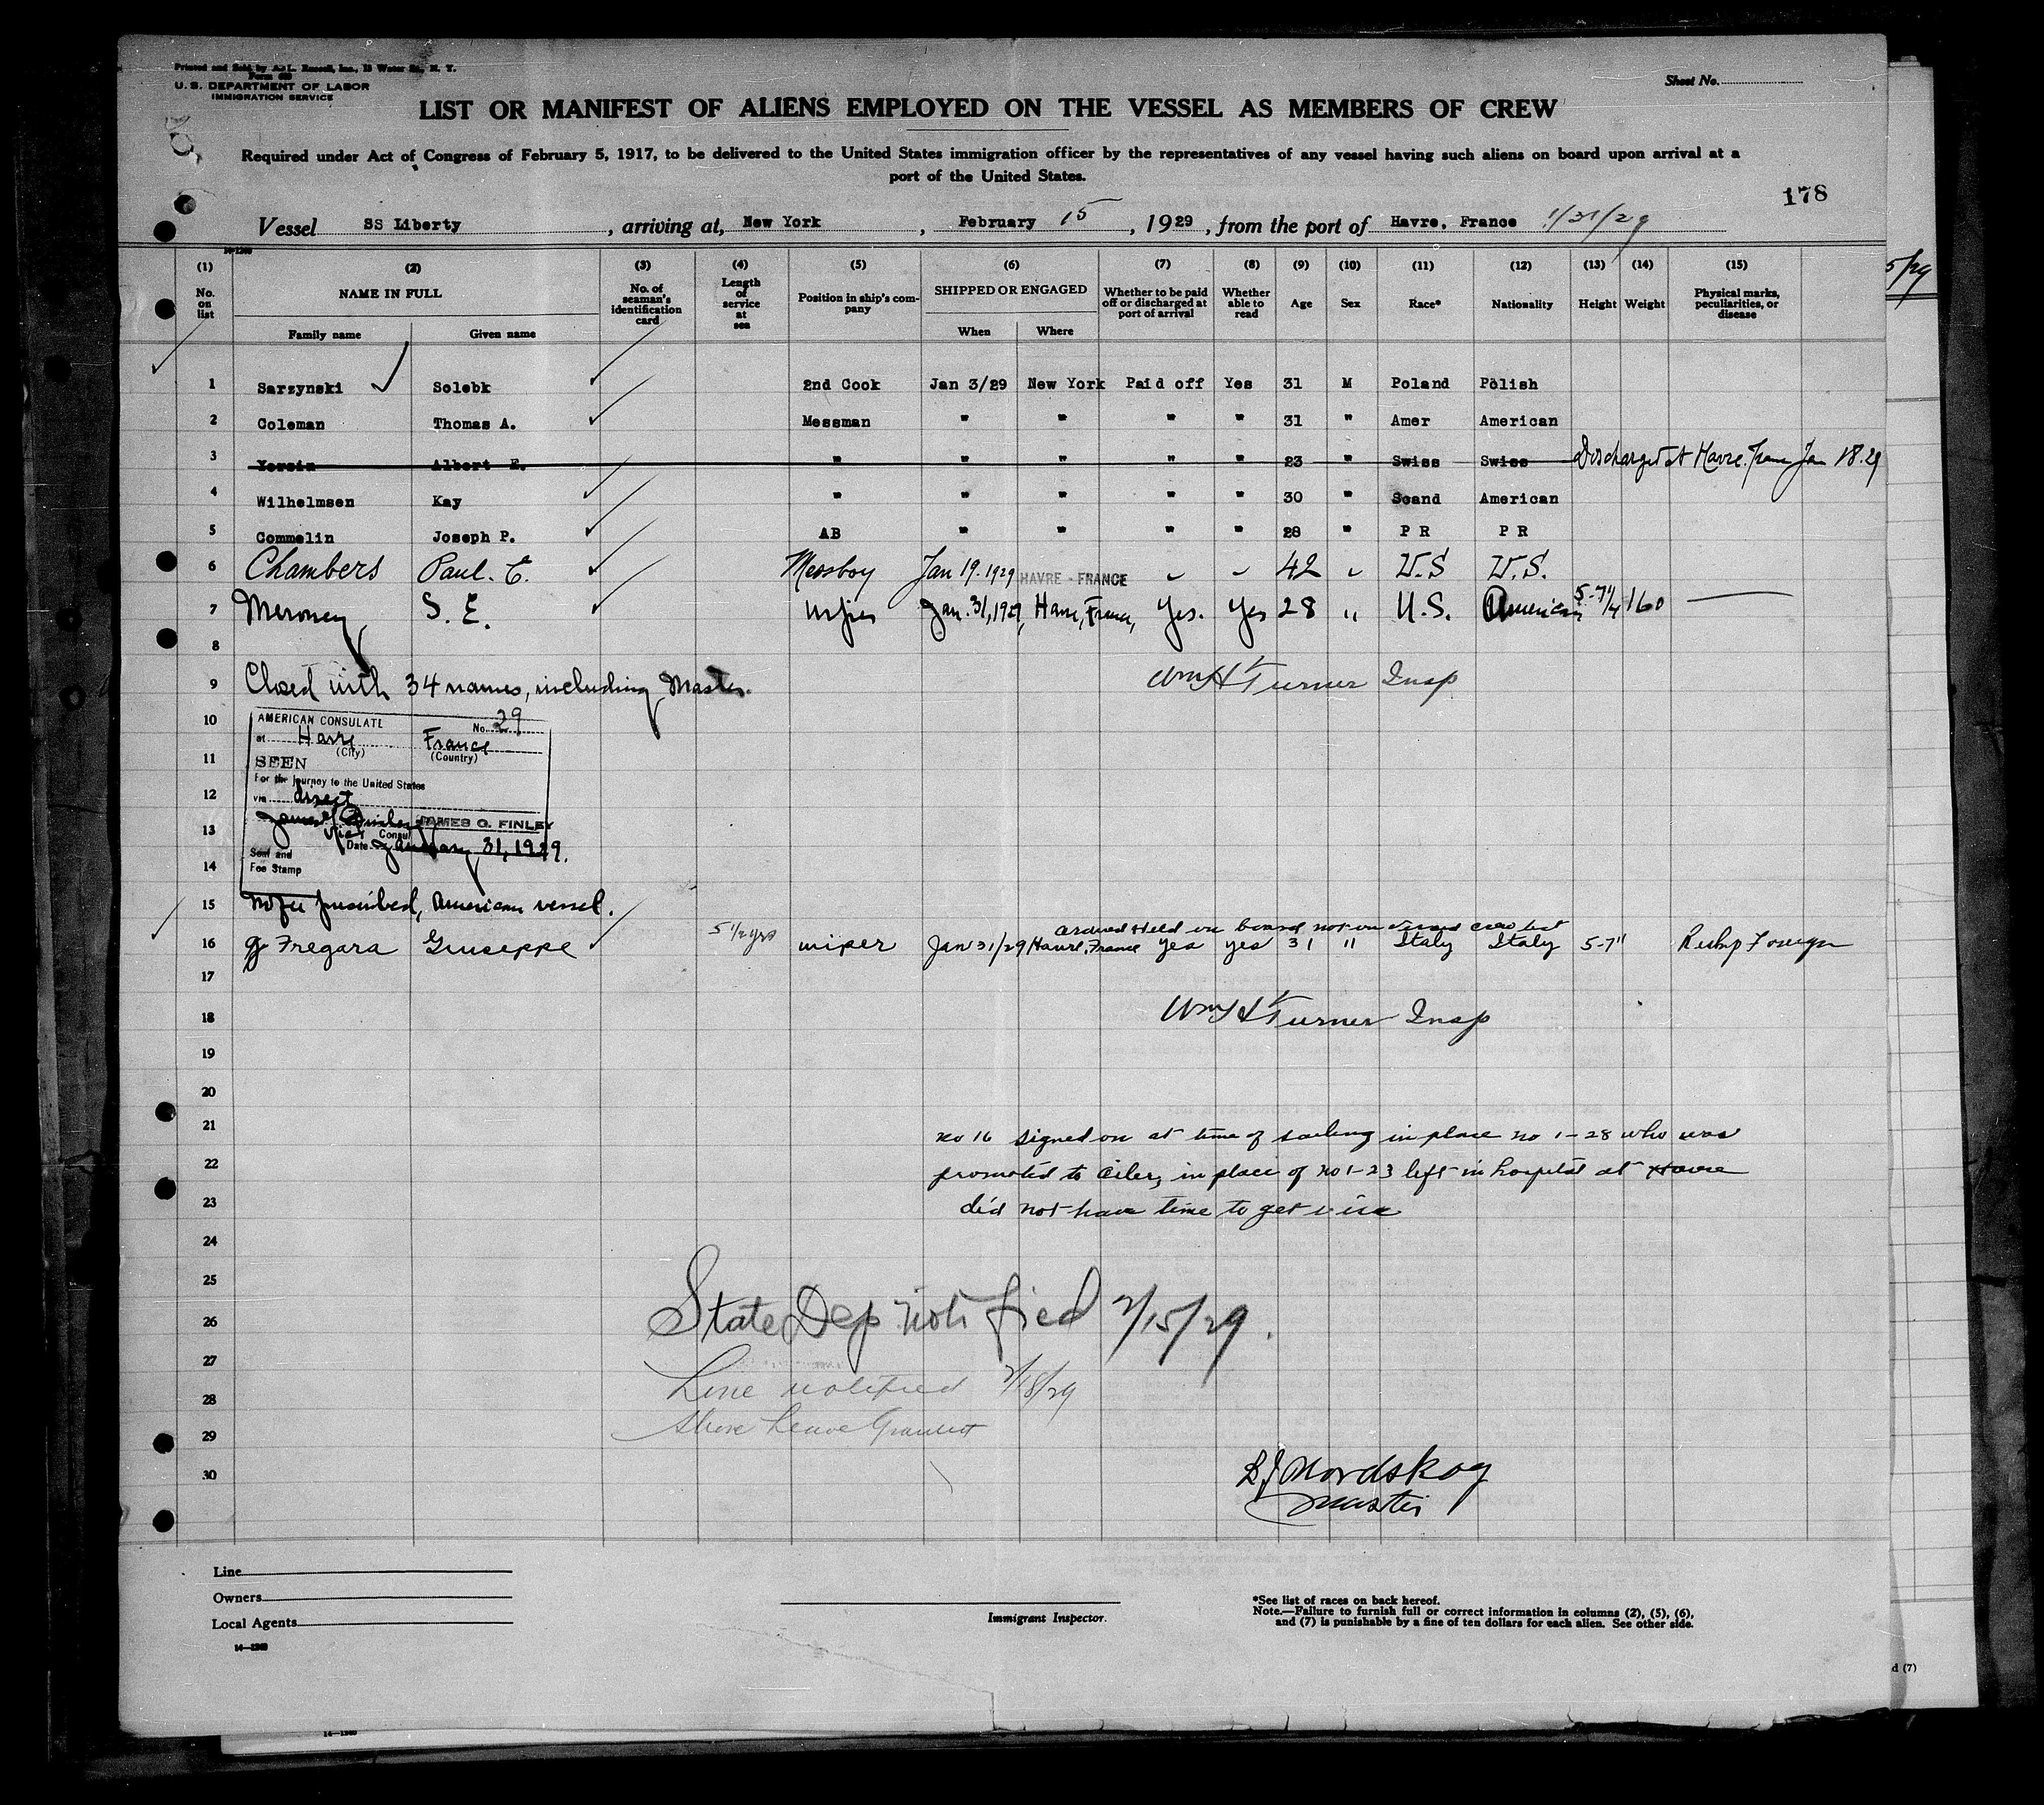 Printed and Sold by A. L. Russell, Inc., 15 Water St., N. Y.
U. S. DEPARTMENT OF LABOR
IMMIGRATION SERVICE
Sheet No.
LIST OR MANIFEST OF ALIENS EMPLOYED ON THE VESSEL AS MEMBERS OF CREW
Required under Act of Congress of February 5, 1917, to be delivered to the United States immigration officer by the representatives of any vessel having such aliens on board upon arrival at a
port of the United States.
178
Vessel SS Liberty , arriving at, New York , February 15 , 1929 , from the port of Havre, France 1/31/29
(1) (2) (3) (4) (5) (6) (7) (8) (9) (10) (11) (12) (13) (14) (15)
No. on list NAME IN FULL No. of seaman's identification card Length of service at sea Position in ship's company SHIPPED OR ENGAGED Whether to be paid off or discharged at port of arrival Whether able to read Age Sex Race* Nationality Height Weight Physical marks, peculiarities, or disease
Family name Given name When Where
5/29
1 Sarzynski Solebk 2nd Cook Jan 3/29 New York Paid off Yes 31 M Poland Polish
2 Coleman Thomas A. Messman " " " " 31 " Amer American
3 Yersin Albert E. " " " " " 23 " Swiss Swiss Discharged At Havre. Jan 18.29
4 Wilhelmsen Kay " " " " " 30 " Scand American
5 Commelin Joseph P. AB " " " " 28 " P R P R
6 Chambers Paul. E. Messboy Jan 19. 1929 HAVRE - FRANCE " " 42 " U.S U.S.
7 Meroney S. E. Wiper Jan. 31, 1929, Havre, France, Yes. Yes 28 " U.S. American 5-7 1/4 160
8
9 Closed with 34 names, including Master. Wm H Turner Insp
10 AMERICAN CONSULATE No. 29
at Havre France
(City) (Country)
11 SEEN
For the journey to the United States
12 via direct
JAMES G. FINLEY
13 Vice Consul
Date January 31, 1929.
Seal and
14 Fee Stamp
15 No fee prescribed, American vessel.
Held on board not on visaed crew list
16 Fregara Giuseppe 5 1/2 yrs wiper Jan 31/29 Havre, France yes yes 31 " Italy Italy 5-7"
17
18 Wm H Turner Insp
19
20
21 no 16 signed on at time of sailing in place no 1-28 who was
22 promoted to oiler, in place of no 1-23 left in hospital at Havre
23 did not have time to get visa
24
25
26 State Dep notified 2/15/29.
27 Line notified 2/18/29
28
29 Shore Leave Granted
30 Nordskog
Master
Line
Owners
Local Agents
14—1240
Immigrant Inspector.
*See list of races on back hereof.
Note.—Failure to furnish full or correct information in columns (2), (5), (6),
and (7) is punishable by a fine of ten dollars for each alien. See other side.
d (7)